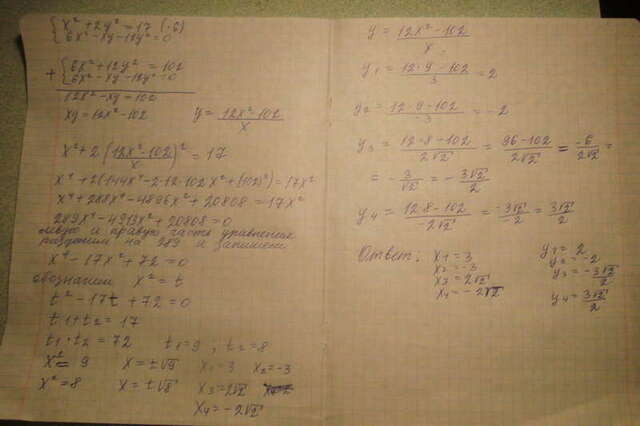 { x² + 2y² = 17 (·6)
{ 6x² - xy - 12y² = 0
+ { 6x² + 12y² = 102
{ 6x² - xy - 12y² = 0
12x² - xy = 102
xy = 12x² - 102 y = (12x² - 102)/x
x² + 2((12x² - 102)/x)² = 17
x⁴ + 2(144x⁴ - 2·12·102x² + (102)²) = 17x²
x⁴ + 288x⁴ - 4896x² + 20808 = 17x²
289x⁴ - 4913x² + 20808 = 0
левую и правую часть уравнения
разделим на 289 и запишем
x⁴ - 17x² + 72 = 0
обозначим x² = t
t² - 17t + 72 = 0
t1 + t2 = 17
t1 · t2 = 72 t1 = 9 ; t2 = 8
x² = 9 x = ±√9 x1 = 3 x2 = -3
x² = 8 x = ±√8 x3 = 2√2
x4 = -2√2
y = (12x² - 102)/x
y1 = (12·9 - 102)/3 = 2
y2 = (12·9 - 102)/-3 = -2
y3 = (12·8 - 102)/2√2 = (96 - 102)/2√2 = -6/2√2 =
= -3/√2 = -3√2/2
y4 = (12·8 - 102)/-2√2 = -3√2/-2 = 3√2/2
Ответ: x1 = 3 y1 = 2
x2 = -3 y2 = -2
x3 = 2√2 y3 = -3√2/2
x4 = -2√2 y4 = 3√2/2